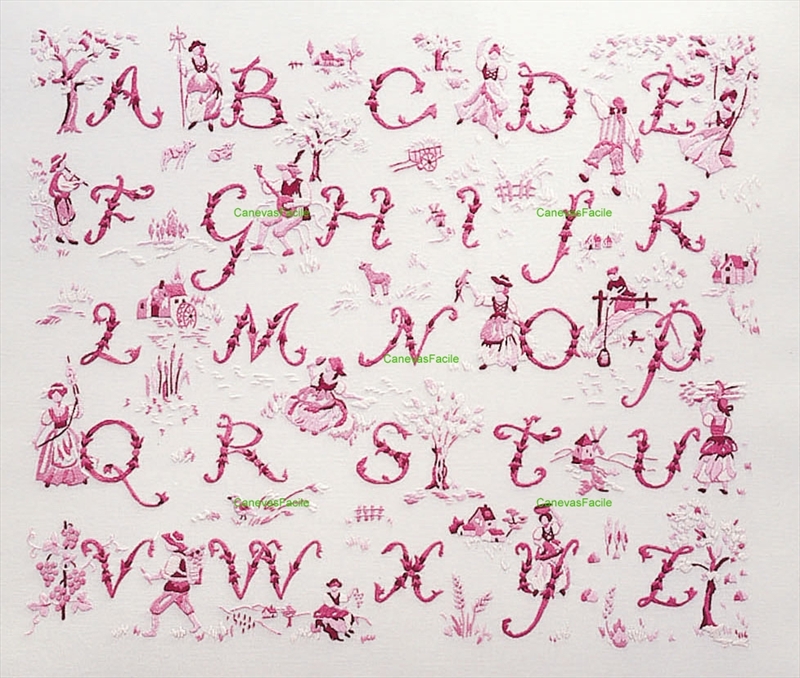 A B C D E
F G H I J K
CanevasFacile CanevasFacile
L M N O P
CanevasFacile
Q R S T U
CanevasFacile CanevasFacile
V W X Y Z